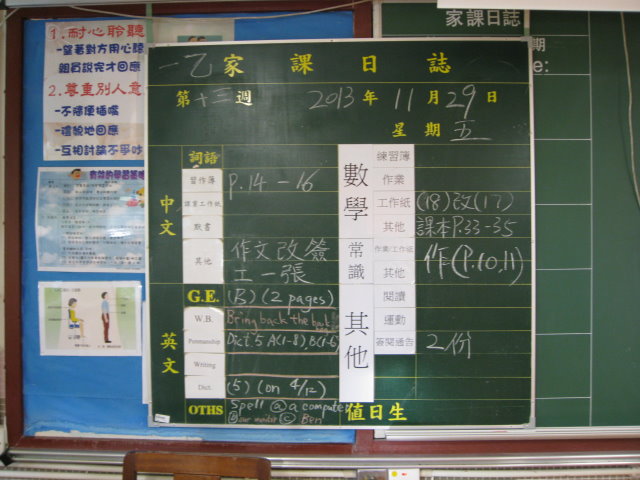 1.耐心聆聽
-望著對方用心聽
組員說完才回應
2.尊重別人意
-不隨便插嘴
-禮貌地回應
-互相討論不爭吵
家課日誌
一乙家課日誌
第十三週 2013年11月29日
星期五
中文
詞語
習作簿 P.14-16
課堂工作紙
默書
其他 作文改簽
土一張
英文
G.E. (B) (2 pages)
W.B. Bring back the
Penmanship Dict 5 A(1-8) B(1-6)
Writing
Dict. (5) (on 4/12)
OTHS Spell @ a computer
Ben
數學
練習簿
作業
工作紙 (18)改(17)
其他 課本P.33-35
常識
作業/工作紙 作(P.10,11)
其他
其他
閱讀
運動
簽閱通告 2份
值日生
期
e: